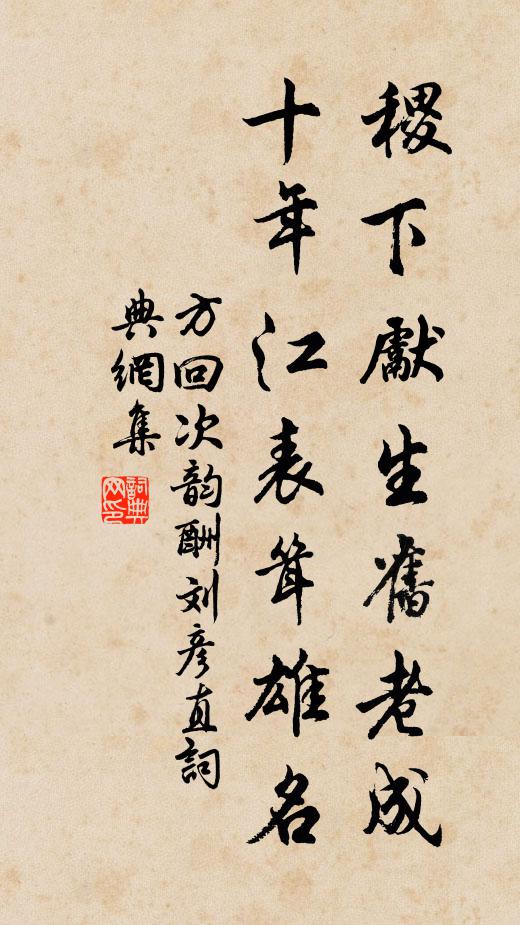 稷下獻生舊老成
十年江表耸雄名
方回次韵酬刘彦直詞
典網集
詞典
网印